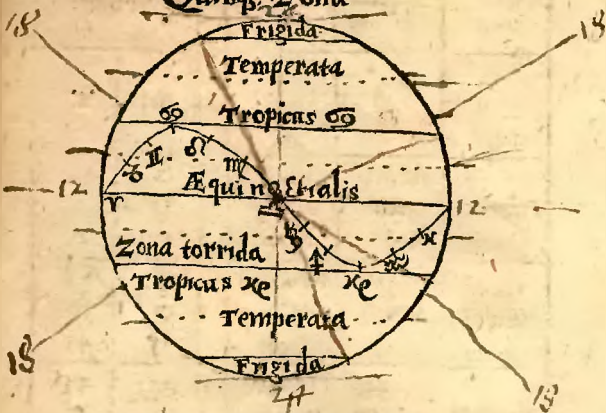 Quinqȝ Zonæ
24
18 18
Frigida
Temperata
Tropicus ♋
♋
♊ ♌
♉ ♍
Æquinoctialis
12 ♈ ♎ 12
♏ ♓
Zona torrida ♐ ♑ ♒
Tropicus ♑
Temperata
Frigida
18 18
24